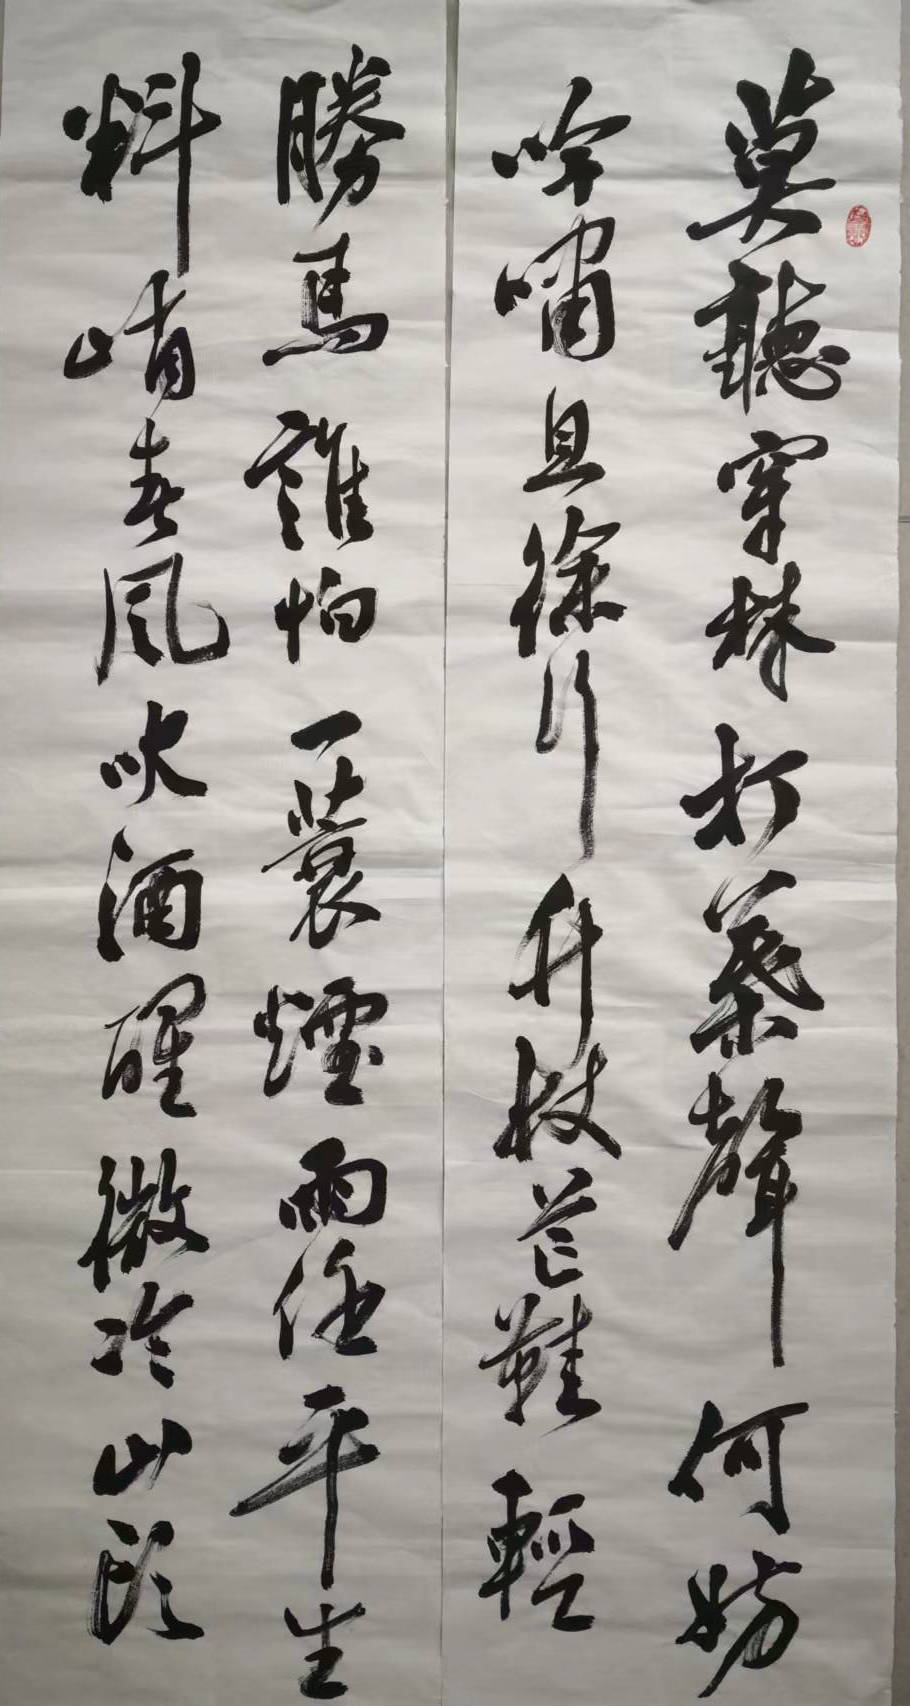 莫聽穿林打葉聲何妨
吟嘯且徐行竹杖芒鞋輕
勝馬誰怕一蓑煙雨任平生
料峭春風吹酒醒微冷山頭